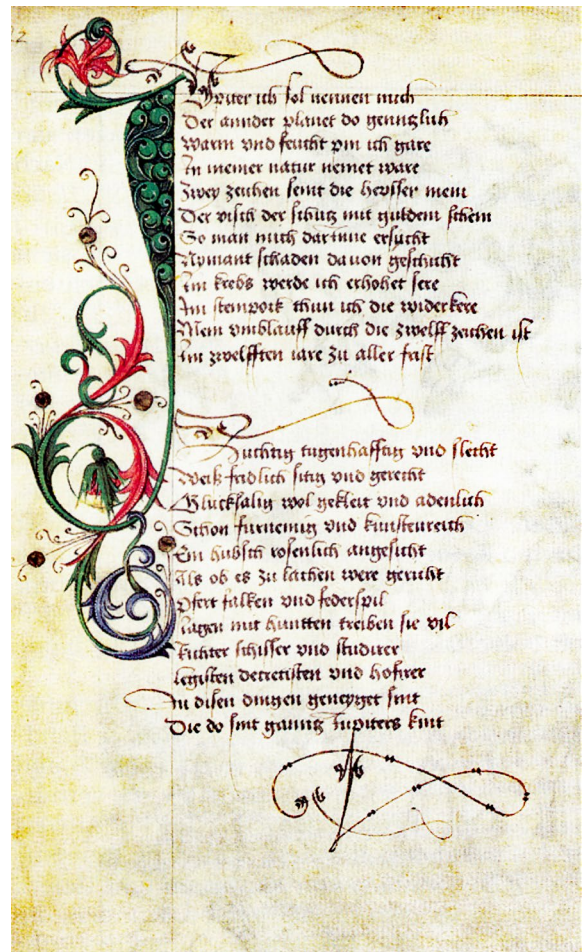 12
Jupiter ich sol nennen mich
Der annder planet do genntzlich
Warm vnd feucht pin ich gare
In meiner natur nemet ware
Zwey zeichen seint die hewser mein
Der visch der schutz mit guldem schein
So man mich dar inne ersucht
Nymant schaden dauon geschicht
Im krebs werde ich erhohet sere
Im steinpock thun ich die widerkere
Mein vmblauff durch die zwelff zeichen ist
Im zwelfften iare zu aller frist
Zuchtig tugenhafftig vnd slecht
Weiß fridlich sitig vnd gerecht
Glucksalig wol gekleit vnd adenlich
Schon furnemig vnd kunstenreich
Ein hubsch rosenlich angesicht
Als ob es zu lachen were gericht
Pfert falken vnd federspil
Iagen mit huntten treiben sie vil
Richter schisser vnd studirer
legisten decretisten vnd hofirer
In disen dingen geneyget sint
Die do sint gannz Iupiters kint